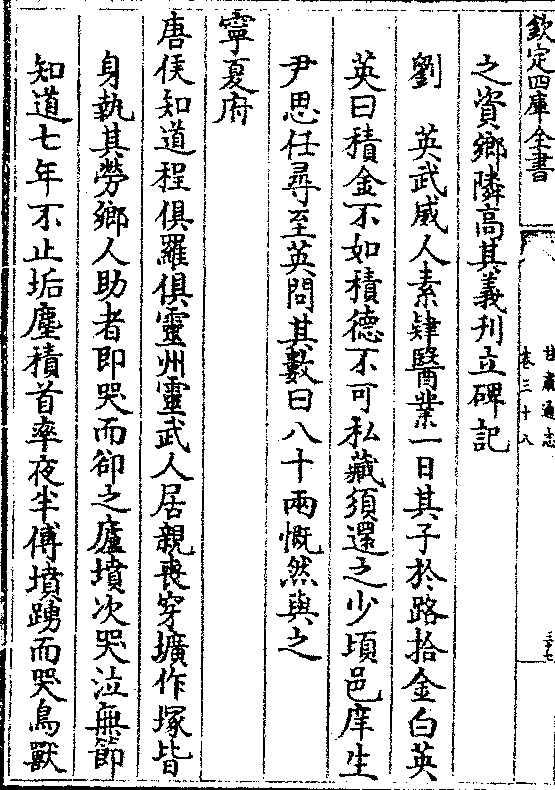 欽定四庫全書
甘肅通志
卷三十八
之資鄉隣高其義刋立碑記
劉　英武威人素肄醫業一日其子於路拾金白英
英曰積金不如積德不可私藏須還之少頃邑庠生
尹思任尋至英問其數曰八十兩慨然與之
寧夏府
唐侯知道程俱羅俱靈州靈武人居親喪穿壙作塚皆
身執其勞鄉人助者即哭而卻之廬墳次哭泣無節
知道七年不止垢塵積首率夜半傅墳踴而哭鳥獸